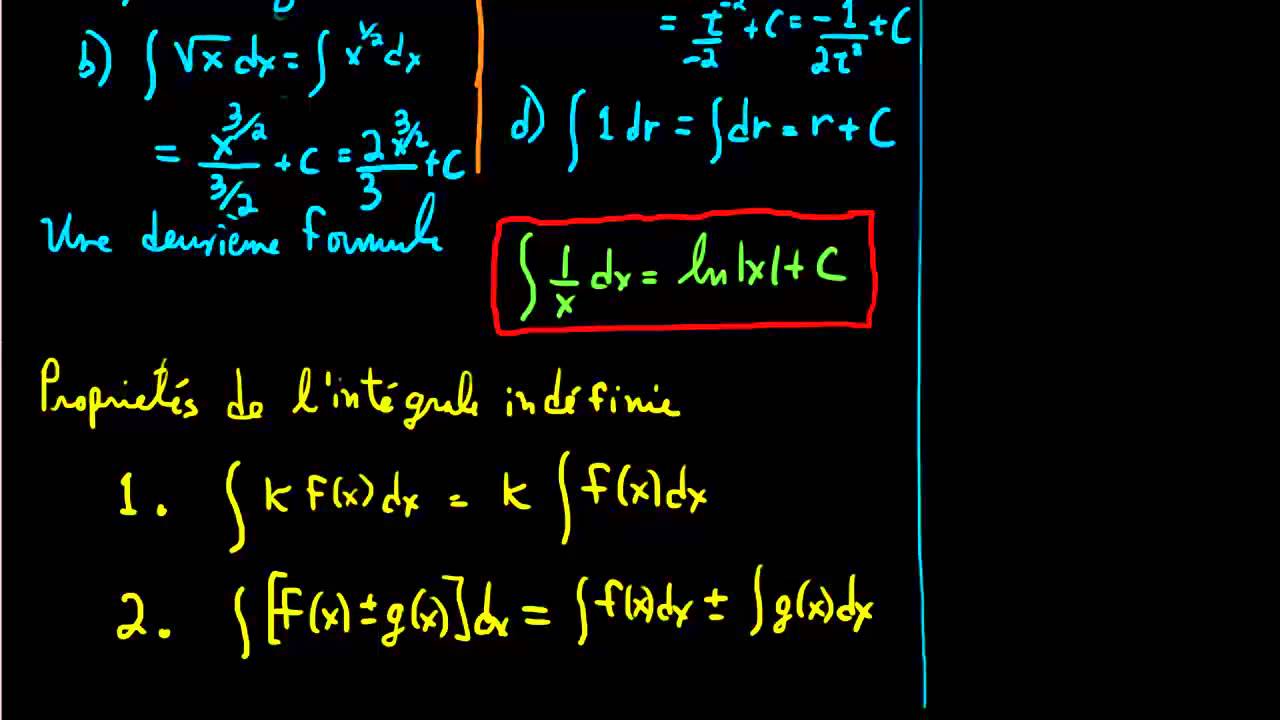 b) ∫ √x dx = ∫ x^1/2 dx
= x^3/2 / 3/2 + C = 2x^3/2 / 3 + C
= t^-2 / -2 + C = -1 / 2t² + C
d) ∫ 1 dr = ∫ dr = r + C
Une deuxième formule
∫ 1/x dx = ln|x| + C
Propriétés de l'intégrale indéfinie
1. ∫ k f(x) dx = k ∫ f(x) dx
2. ∫ [f(x) ± g(x)] dx = ∫ f(x) dx ± ∫ g(x) dx